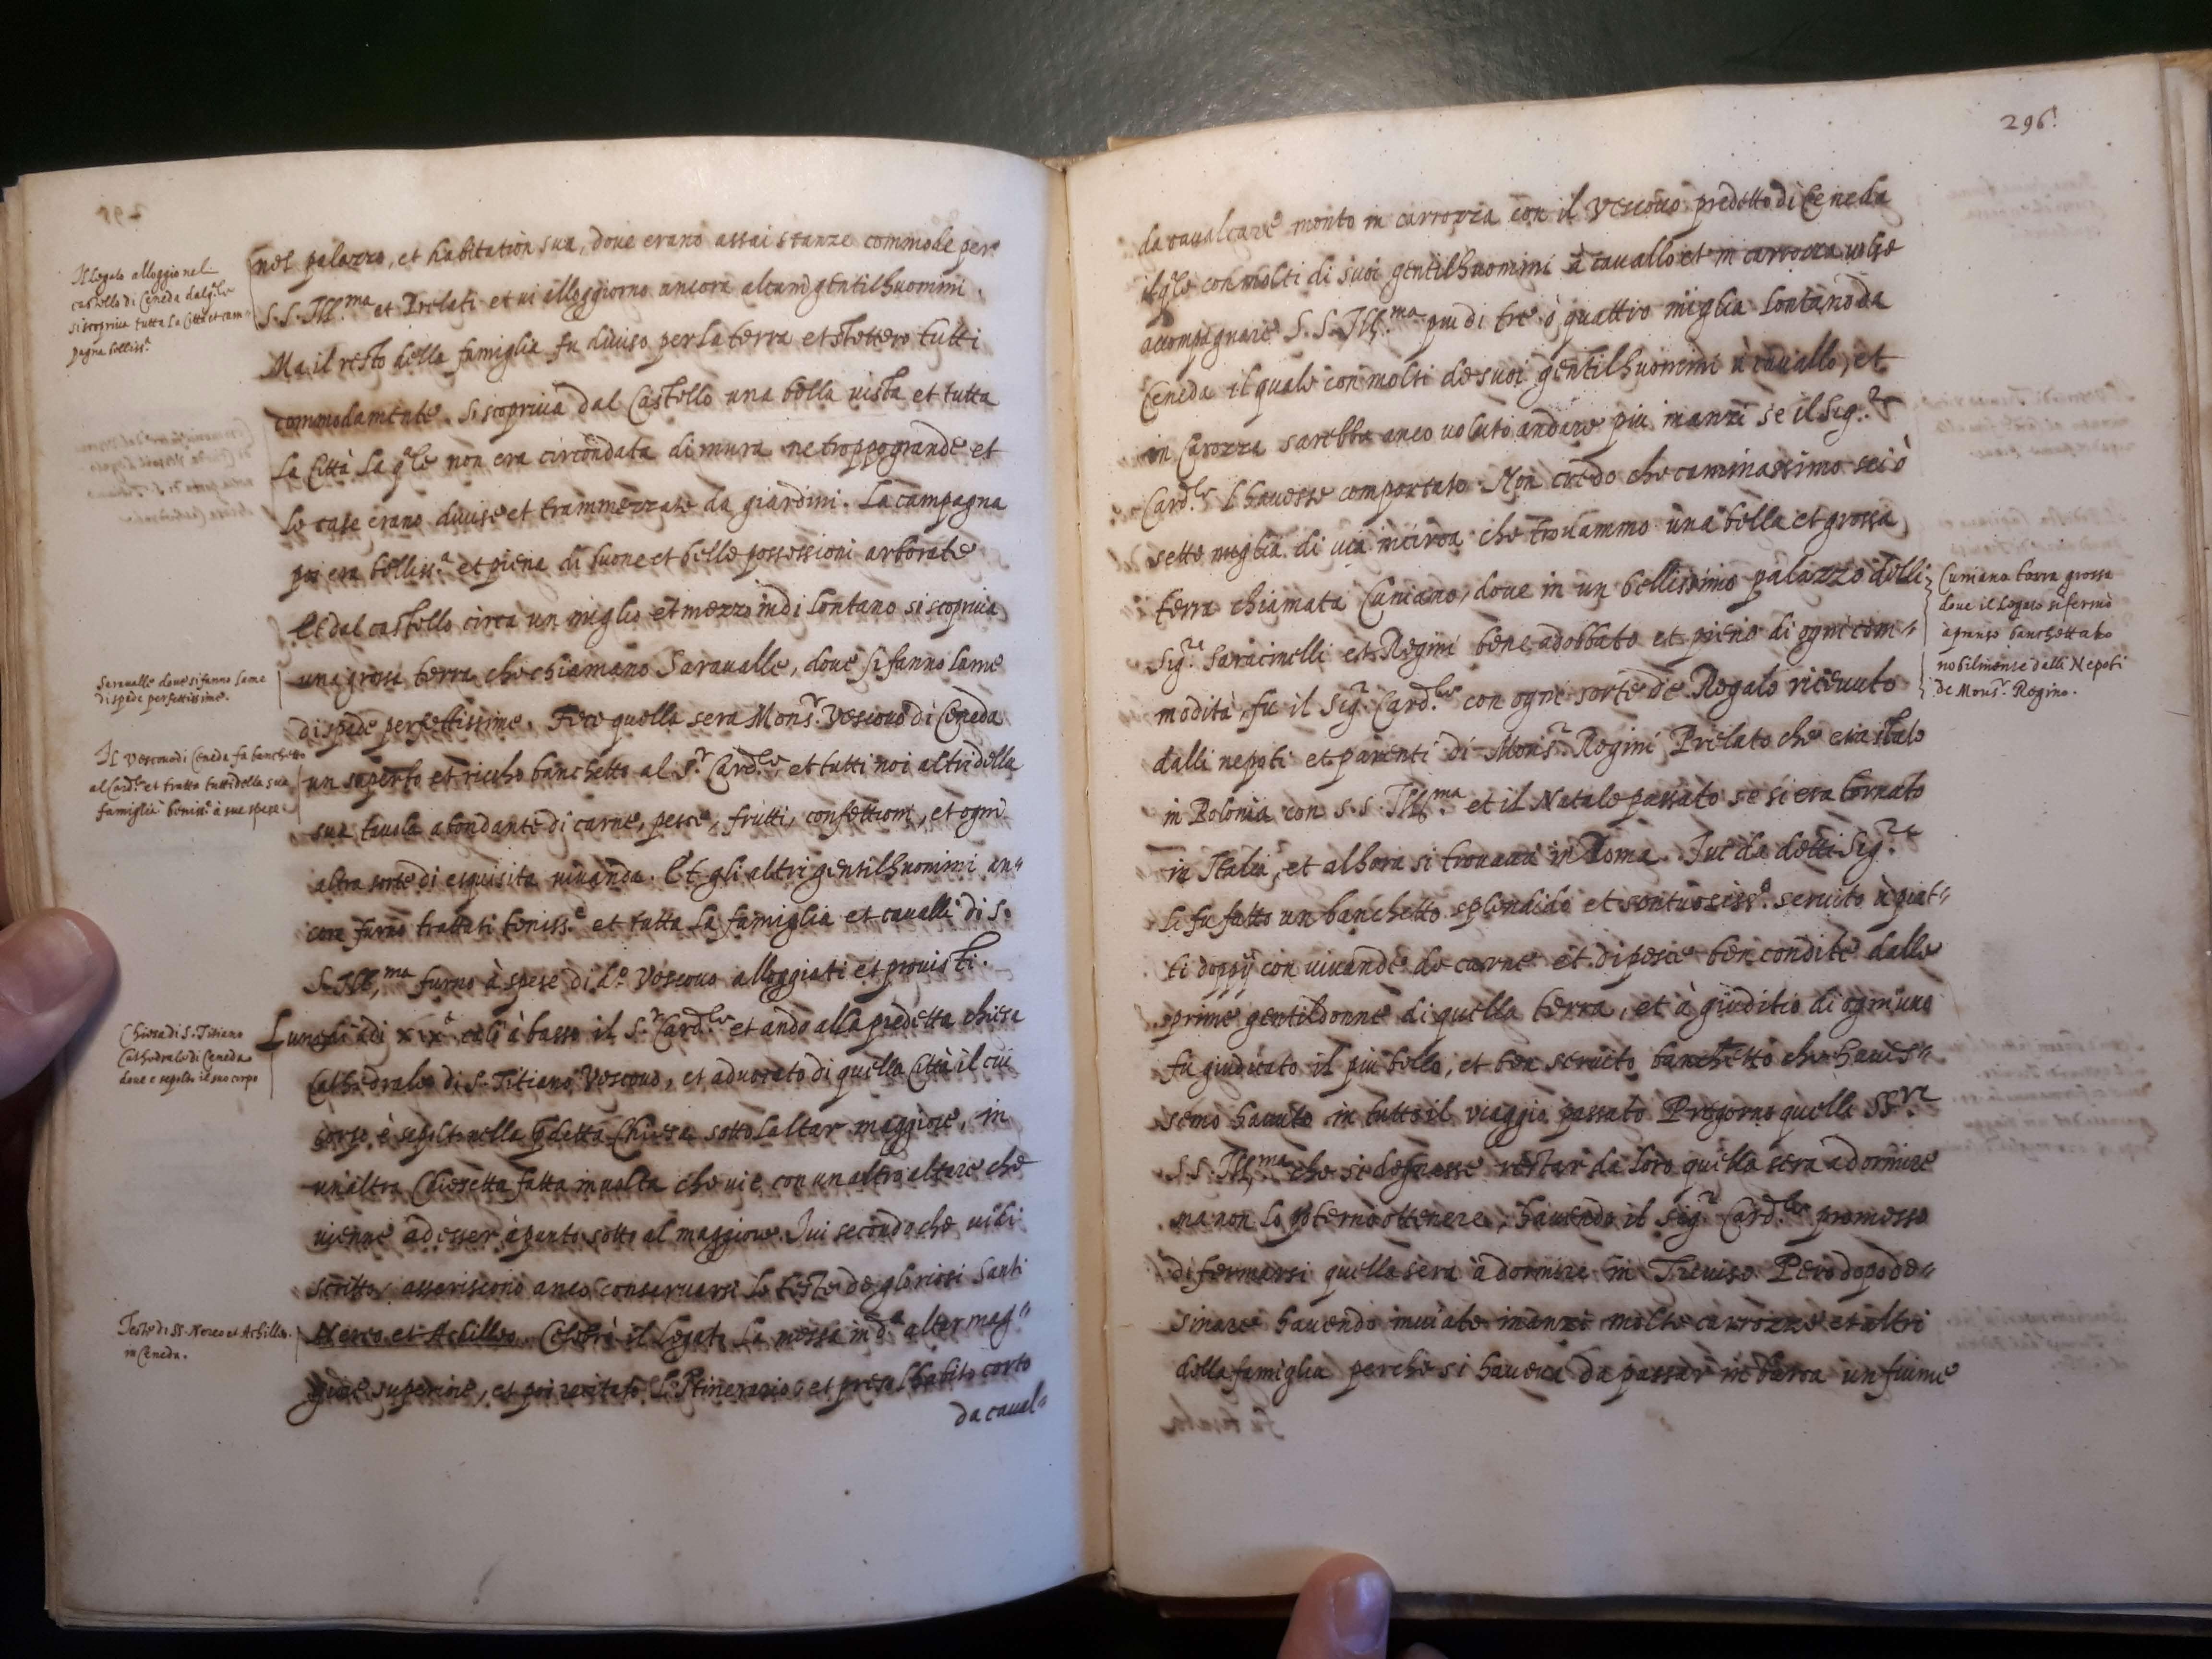 Il Legato alloggio nel
castello di Ceneda dal q.le
si scopriua tutta la Città et cam=
pagna belliss.a
Seraualle doue si fanno lame
di spade perfettissime.
Il Vescouo di Ceneda fa banchetto
al Card.le et tratta tutti della sua
famiglia beniss.o à sue spese
Chiesa di S. Titiano
Cathedrale di Ceneda
doue è sepolto il suo corpo
Teste di SS. Nereo et Achilleo
in Ceneda.
nel palazzo, et habitation sua, doue erano assai stanze commode per
S. S. Ill.ma et Prelati et ui alloggiorno ancora alcuni gentilhuomini.
Ma il resto della famiglia fu diuiso per la terra et stettero tutti
commodamente. Si scopriua dal Castello una bella uista et tutta
la Città la q.le non era circondata di mura ne troppo grande et
le case erano diuise et trammezzate da giardini. La campagna
poi era belliss.a et piena di buone et belle possessioni arborate
Et dal castello circa un miglio et mezzo indi lontano si scopriua
una grossa terra che chiamano Seraualle, doue si fanno lame
di spade perfettissime. Fece quella sera Mons.r Vescouo di Ceneda
un superbo et riccho banchetto al S.r Card.le, et tutti noi altri della
sua tauola abondante di carne, pesce, frutti, confettioni, et ogni
altra sorte di esquisita uiuanda. Et gli altri gentilhuomini an=
cora furno trattati beniss.o et tutta la famiglia et caualli di S.
S. Ill.ma furno à spese di d.o Vescouo alloggiati et prouisti.
Lunedi adi xix calò à basso il S.r Card.le et andò alla predetta chiesa
Cathedrale di S. Titiano Vescouo, et aduocato di quella Città il cui
corpo è sepolto nella p.detta Chiesa sotto l'altar maggiore, in
un'altra Chiesetta fatta in uolta che ui è con un altro altare che
uienne ad esser à punto sotto al maggiore. Iui secondo che uidi
scritto, asseriscono anco conseruarsi le teste de gloriosi Santi
Nereo et Achilleo. Celebrò il Legato la messa in d.o altar mag=
giore superiore, et poi recitato l'Itinerario, et preso l'habito corto
da caual=
296.
da caualcare montò in carrozza con il Vescouo predetto di Ceneda
il q.le con molti di suoi gentilhuomini à cauallo et in carrozza uolse
accompagnare S. S. Ill.ma piu di tre ò quattro miglia lontano da
Ceneda il quale con molti de suoi gentilhuomini à cauallo, et
in Carozza sarebbe anco uoluto andare piu inanzi se il Sig.r
Card.le l'hauesse comportato. Non credo che caminassimo sei ò
sette miglia di uia incirca che trouammo una bella et grossa
terra chiamata Cuniano, doue in un bellissimo palazzo delli
Sig.ri Saracinelli et Regini bene adobbato et pieno di ogni com=
modità, fu il Sig.r Card.le con ogni sorte de Regalo riceuuto
dalli nepoti et parenti di Mons.r Regini Prelato che era stato
in Polonia con S. S. Ill.ma et il Natale passato se si era tornato
in Italia, et alhora si trouaua in Roma. Iui da detti Sig.ri
li fu fatto un banchetto splendido et sontuosiss.o seruito à piat=
ti doppij con uiuande de carne et di pesce ben condite dalle
prime gentildonne di quella terra, et à giuditio di ogniuno
fu giudicato il piu bello, et ben seruito banchetto che haues=
semo hauuto in tutto il viaggio passato. Pregorno quelli SS.ri
S. S. Ill.ma che si degnasse restar da loro quella sera a dormire
ma non lo poterno ottenere, hauendo il Sig.r Card.le promesso
di fermarsi quella sera à dormire in Treuiso. Però dopo de=
sinare hauendo inuiate inanzi molte carrozze et altri
della famiglia perche si haueua da passar in barca un fiume
Cuniano terra grossa
doue il Legato si fermò
à pranso banchettato
nobilmente dalli Nepoti
de Mons.r Regino.